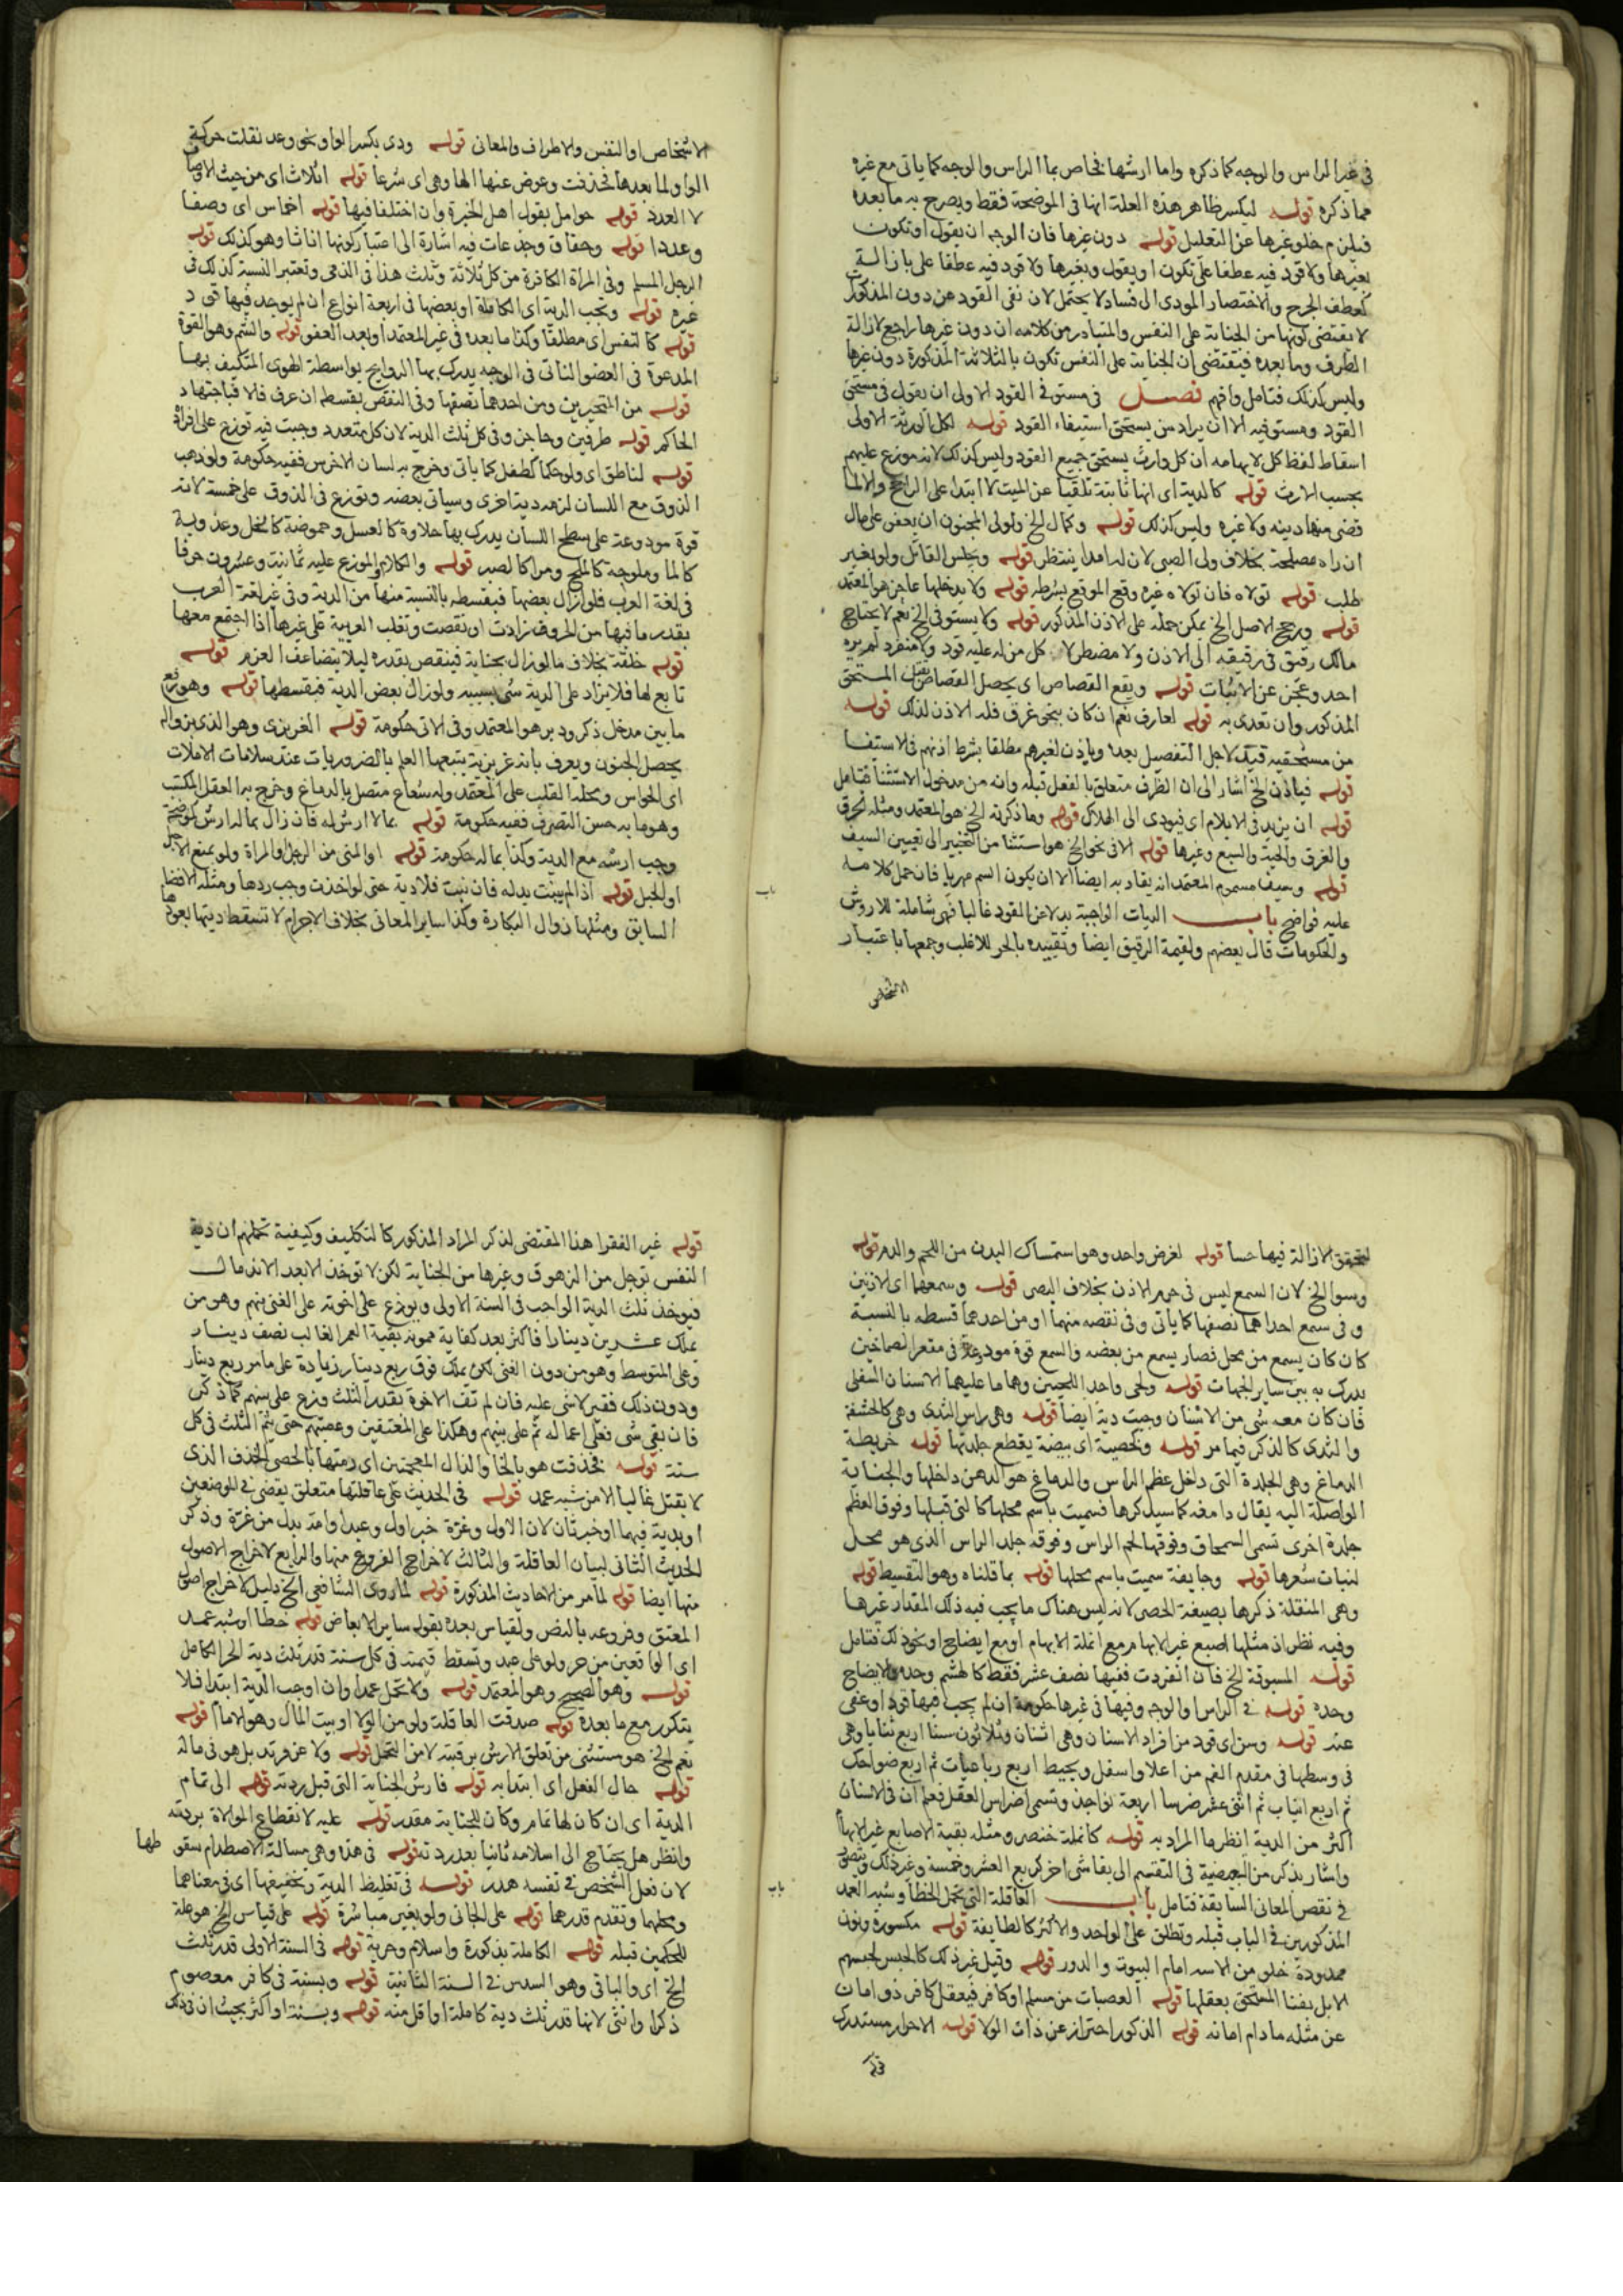 في غير الراس والوجه كما ذكره واما ارشها فخاص بما الراس والوجه كما ياتي مع غيره
مما ذكره قوله ليكسر ظاهر هذه العلة انها في الموضحة فقط ويصرح به ما بعده
فيلزم خلو غيرها عن التعليل قوله دون غيرها فان الوجه ان يقول او تكون
بغيرها ولا قود فيه عطفا على تكون او يقول وبغيرها ولا قود فيه عطفا على بازالة
كعطف الجرح والاختصار المودي الى فساد لا يحتمل لان نفي القود من دون المذكور
لا يقتضي كونها من الجناية على النفس والمتبادر من كلامه ان دون غيرها راجع لازالة
الطرف وما بعده فيقتضي ان الجناية على النفس تكون بالثلاثة المذكورة دون غيرها
وليس كذلك فتامل وافهم فصل في مستوفي القود الاولى ان يقول في مستحق
القود ومستوفيه الا ان يراد من يستحق استيفاء القود قوله لكل الورثة الاولى
اسقاط لفظ كل لايهامه ان كل وارث يستحق جميع القود وليس كذلك لانه موزع عليهم
بحسب الارث قوله كالدية اي انها ثابتة تلقيا عن الميت لا ابتدا على الراجح والا لما
قضى منها دينه ولا غيره وليس كذلك قوله وكمال الخ ولولي المجنون ان يعفو على مال
ان راه مصلحة بخلاف ولي الصبي لان له امدا ينتظر قوله ويحبس القاتل ولو بغير
طلب قوله تولاه فان تولاه غيره وقع الموقع بشرطه قوله ولا يدخلها عاجز هو المعتمد
قوله ورجح الاصل الخ يمكن حمله على الاذن المذكور قوله ولا يستوفي الخ نعم لا يحتاج
مالك رقيق في رقيقه الى الاذن ولا مضطر لا كل من له عليه قود ولا منفرد لم يره
احد وعجز عن الاثبات قوله ويقع القصاص اي يحصل القصاص بقتل المستحق
المذكور وان تعدى به قوله لعارف نعم ان كان بنحو غرق فله الاذن لذلك قوله
من مستحقيه قيد لاجل التفصيل بعده وياذن لغيرهم مطلقا بشرط اذنهم في الاستيفا
قوله فياذن الخ اشار الى ان الظرف متعلق بالفعل قبله وانه من مدخول الاستثنا فتامل
قوله ان يزيد في الايلام اي فيودي الى الهلاك قوله وما ذكرته الخ هو المعتمد ومثله الحرق
والغرق والحية والسبع وغيرها قوله الا في نحو الخ هو استثنا من التخيير الى تعيين السيف
قوله وسيف مسموم المعتمد انه يقاد به ايضا الا ان يكون السم مهريا فان حمل كلامه
عليه فواضح باب الديات الواجبة بدلا عن القود غالبا فهي شاملة للاروش
والحكومات قال بعضهم ولقيمة الرقيق ايضا وتقييده بالحر للاغلب وجمعها باعتبار
الاشخاص
الاشخاص او النفس والاطراف والمعاني قوله ودي بكسر الواو نحو وعد نقلت حركة
الواو لما بعدها فحذفت وعوض عنها الها وهي اي شرعا قوله اثلاث اي من حيث الاوصاف
لا العدد قوله حوامل بقول اهل الخبرة وان اختلفا فيها قوله اخماس اي وصفا
وعددا قوله وحقاق وجذعات فيه اشارة الى اعتبار كونها اناثا وهو كذلك قوله
الرجل المسلم وفي المراة الكافرة من كل ثلاثة وثلث هذا في الذمي وتعتبر النسبة كذلك في
غيره قوله وتجب الدية اي الكاملة او بعضها في اربعة انواع ان لم يوجد فيها قود
قوله كالنفس اي مطلقا وكذا ما بعده في غير المعتمد او بعد العفو قوله والشم وهو القوة
المدعوة في العضو الناتي في الوجه يدرك بها الروايح بواسطة الهوى المتكيف بها
قوله من المنخرين ومن احدهما نصفها وفي النقص بقسطه ان عرف فالا فباجتهاد
الحاكم قوله طرفين وحاجز وفي كل ثلث الدية لان كل متعدد وجبت فيه توزع على افراده
قوله لناطق اي ولو حكما كطفل كما ياتي وخرج به لسان الاخرس ففيه حكومة ولو ذهب
الذوق مع اللسان لزمه دية اخرى وسياتي بعضه وتوزع في الذوق على خمسة لانه
قوة مودوعة على سطح اللسان يدرك بها حلاوة كالعسل وحموضة كالخل وعذوبة
كالما وملوحة كالملح ومرا كالصبر قوله والكلام والموزع عليه ثمانية وعشرون حرفا
في لغة العرب فلو ازال بعضها فبقسطه بالنسبة منها من الدية وفي غير لغة العرب
بقدر ما فيها من الحروف زادت او نقصت وتغلب العربية على غيرها اذا اجتمع معها
قوله خلقة بخلاف ما لو زال بجناية فينقص بقدره ليلا يتضاعف الغرم قوله
تابع لها فلا يزاد على الدية شي بسببه ولو زال بعض الدية فبقسطها قوله وهو رفع
ما بين مدخل ذكر ودبر هو المعتمد وفي الاتي حكومة قوله الغريزي وهو الذي بزواله
يحصل الجنون ويعرف بانه غريزية يتبعها العلم بالضروريات عند سلامات الالات
اي الحواس ومحله القلب على المعتمد وله شعاع متصل بالدماغ وخرج به العقل المكتسب
وهو ما به حسن التصرف ففيه حكومة قوله بما لا ارش له فان زال بماله ارش كموضحة
وجب ارشه مع الدية وكذا بماله حكومة قوله او المني من الرجل والمراة ولو بمنع الاحبال
او الحبل قوله اذا لم ينبت بدله فان نبت فلا دية حتى لو اخذت وجب ردها ومثله الافضا
السابق ومثلها زوال البكارة وكذا ساير المعاني بخلاف الاجرام لا تسقط ديتها بعودها
باب
لتحقق الازالة فيها حسا قوله لغرض واحد وهو استمساك البدن من اللحم والدم قوله
وسوا الخ لان السمع ليس في جرم الاذن بخلاف البصر قوله وسمعهما اي الاذنين
وفي سمع احداهما نصفها كما ياتي وفي نقصه منهما او من احدهما قسطه بالنسبة
كان كان يسمع من محل فصار يسمع من بعضه والسمع قوة مودعة في مقعر الصماخين
يدرك به بين ساير الجهات قوله ولحي واحد اللحيين وهما ما عليهما الاسنان السفلى
فان كان معه شي من الاسنان وجبت دية ايضا قوله وهي راس الثدي وهي كالحشفة
والثدي كالذكر فيما مر قوله وكخصية اي بيضة يقطع جلدتها قوله خريطة
الدماغ وهي الجلدة التي داخل عظم الراس والدماغ هو الدهن داخلها والجناية
الواصلة اليه يقال دامغة كما سيذكرها فسميت باسم محلها كالتي قبلها وفوق العظم
جلدة اخرى تسمى السمحاق وفوقها لحم الراس وفوقه جلد الراس الذي هو محل
لنبات شعرها قوله وجايفة سميت باسم محلها قوله بما قلناه وهو التقسيط قوله
وهي المنقلة ذكرها بصيغة الحصر لانه ليس هناك ما يجب فيه ذلك المقدار غيرها
وفيه نظر اذ مثلها اصبع غير الابهام مع انملة الابهام او مع ايضاح او نحو ذلك فتامل
قوله المسبوقة الخ فان انفردت ففيها نصف عشر فقط كالهشم وحده والايضاح
وحده قوله في الراس او الوجه وفيها في غيرها حكومة ان لم يجب فيها قود او عفي
عنه قوله وسن اي قود من افراد الاسنان وهي اثنان وثلاثون سنا اربع ثنايا وهي
في وسطها في مقدم الفم من اعلا واسفل ويحيط اربع رباعيات ثم اربع ضواحك
ثم اربع انياب ثم اثني عشر ضرسا اربعة نواجذ وتسمى اضراس العقل فعلم ان في الاسنان
اكثر من الدية انظر ما المراد به قوله كانملة خنصر ومثله بقية الاصابع غير الابهام
واشار بذكر من البعضية في التقسيم الى بقا شي اخر كربع العشر وخمسة وغير ذلك
في نقص المعاني السابقة فتامل باب العاقلة التي تحمل الخطا وشبه العمد
المذكورين في الباب قبله وتطلق على الواحد والاكثر كالطايفة قوله مكسورة ونون
ممدودة خلو من الاسه امام البيوت والدور قوله وقيل غير ذلك كالحبس لحبسهم
الابل بفنا المستحق بعقلها قوله العصبات من مسلم او كافر فيعقل كافر ذو امان
عن مثله ما دام امانه قوله الذكور احتراز عن ذات الولا قوله الاحرار مستدرك
قوله غير الفقرا هذا المقتضى لذكر المراد المذكور كالتكليف وكيفية تحملهم ان دية
النفس توجل من الزهوق وغيرها من الجناية لكن لا توخذ الابعد الاندمال
فيوخذ ثلث الدية الواجب في السنة الاولى ويوزع على اخوته على الغني منهم وهو من
يملك عشرين دينارا فاكثر بعد كفاية ممونه بقية العمر الغالب نصف دينار
وعلى المتوسط وهو من دون الغني لكن يملك فوق ربع دينار زيادة على ما مر ربع دينار
ودون ذلك فقير لا شي عليه فان لم تف الاخوة بقدر الثلث وزع على بنيهم كما ذكر
فان بقي شي فعلى اعماله ثم على بنيهم وهكذا على المعتقين وعصبتهم حتى يتم الثلث في كل
سنة قوله فخذفت هو بالخا والذال المعجمتين اي رمتها بالحصى الخذف الذي
لا يقتل غالبا لا من شبه عمد قوله في الحديث على عاقلتها متعلق بقضى في الموضعين
او بدية فيهما او خبرتان لان الاول وغرة خبر اول وعبد او امة بدل من غرة وذكر
الحديث الثاني لبيان العاقلة والثالث لاخراج الفروع منها والرابع لاخراج الاصول
منها ايضا قوله لما مر من الاحاديث المذكورة قوله لما روى الشافعي الخ دليل لاخراج اصول
المعتق وفروعه بالنص ولقياس بعده بقوله ساير الابعاض قوله خطا او شبه عمد
اي الواقعين من حر ولو على عبد وتسقط قيمته في كل سنة قدر ثلث دية الحر الكامل
قوله وهو الصحيح وهو المعتمد قوله ولا تحمل عمدا وان اوجب الدية ابتدا فلا
يتكرر مع ما بعده قوله صدقت العاقلة ولو من الولا او بيت المال وهو الامام قوله
نعم الخ هو مستثنى من تعلق الارش برقبته لا من التحمل قوله ولا عن مرتد بل هو في ماله
قوله حال الفعل اي ابتدا به قوله فارش الجناية التي قبل ردته قوله الى تمام
الدية اي ان كان لها تمام وكان للجناية مقدر قوله عليه لانقطاع الموالاة بردته
وانظر هل يحتاج الى اسلامه ثانيا بعد ردته قوله في هذا وهي مسالة الاصطدام سقوطها
لان فعل الشخص في نفسه هدر قوله في تغليظ الدية وتخفيفها اي في معناهما
ومحلهما وتقدم قدرهما قوله على الجاني ولو بغير مباشرة قوله على قياس الخ هو علة
للحكمين قبله قوله الكاملة بذكورة واسلام وحرية قوله في السنة الاولى قدر ثلث
الخ اي والباقي وهو السدس في السنة الثانية قوله وبسنة في كافر معصوم
ذكرا وانثى لانها قدر ثلث دية كاملة او اقل منه قوله وبسنة او اكثر بحيث ان في ذلك
باب